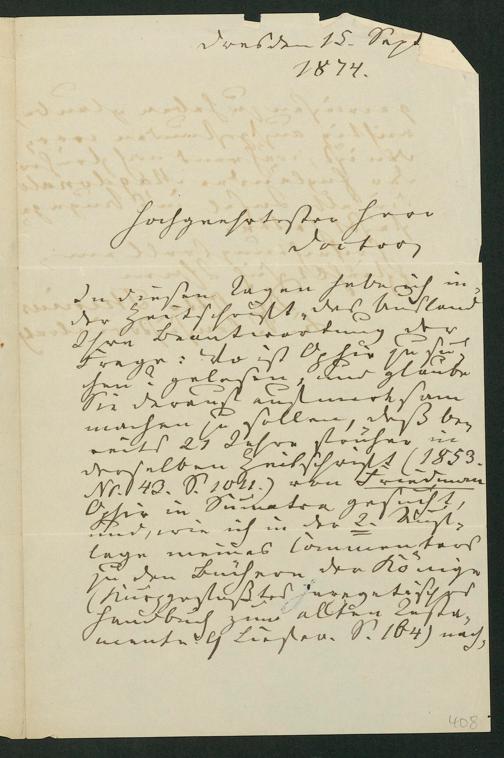 Dresden 15. Sept
1874.
Hochgeehrtester Herr
Doctor,
In diesen Tagen habe ich in
der Zeitschrift „das Ausland
Ihre Beantwortung der
Frage: Wo ist Ophir zu su-
chen? gelesen, und glaube
Sie darauf aufmerksam
machen zu sollen, daß be-
reits 21 Jahre früher in
derselben Zeitschrift (1853.
Nr. 43. S. 1011.) von Friedmann
Ophir in Sumatra gesucht,
und, wie ich in der 2. Auf-
lage meines Commentars
zu den Büchern der Könige
(Kurzgefaßtes exegetisches
Handbuch zum alten Testa-
mente. 9 Liefer. S. 164) nach,
408